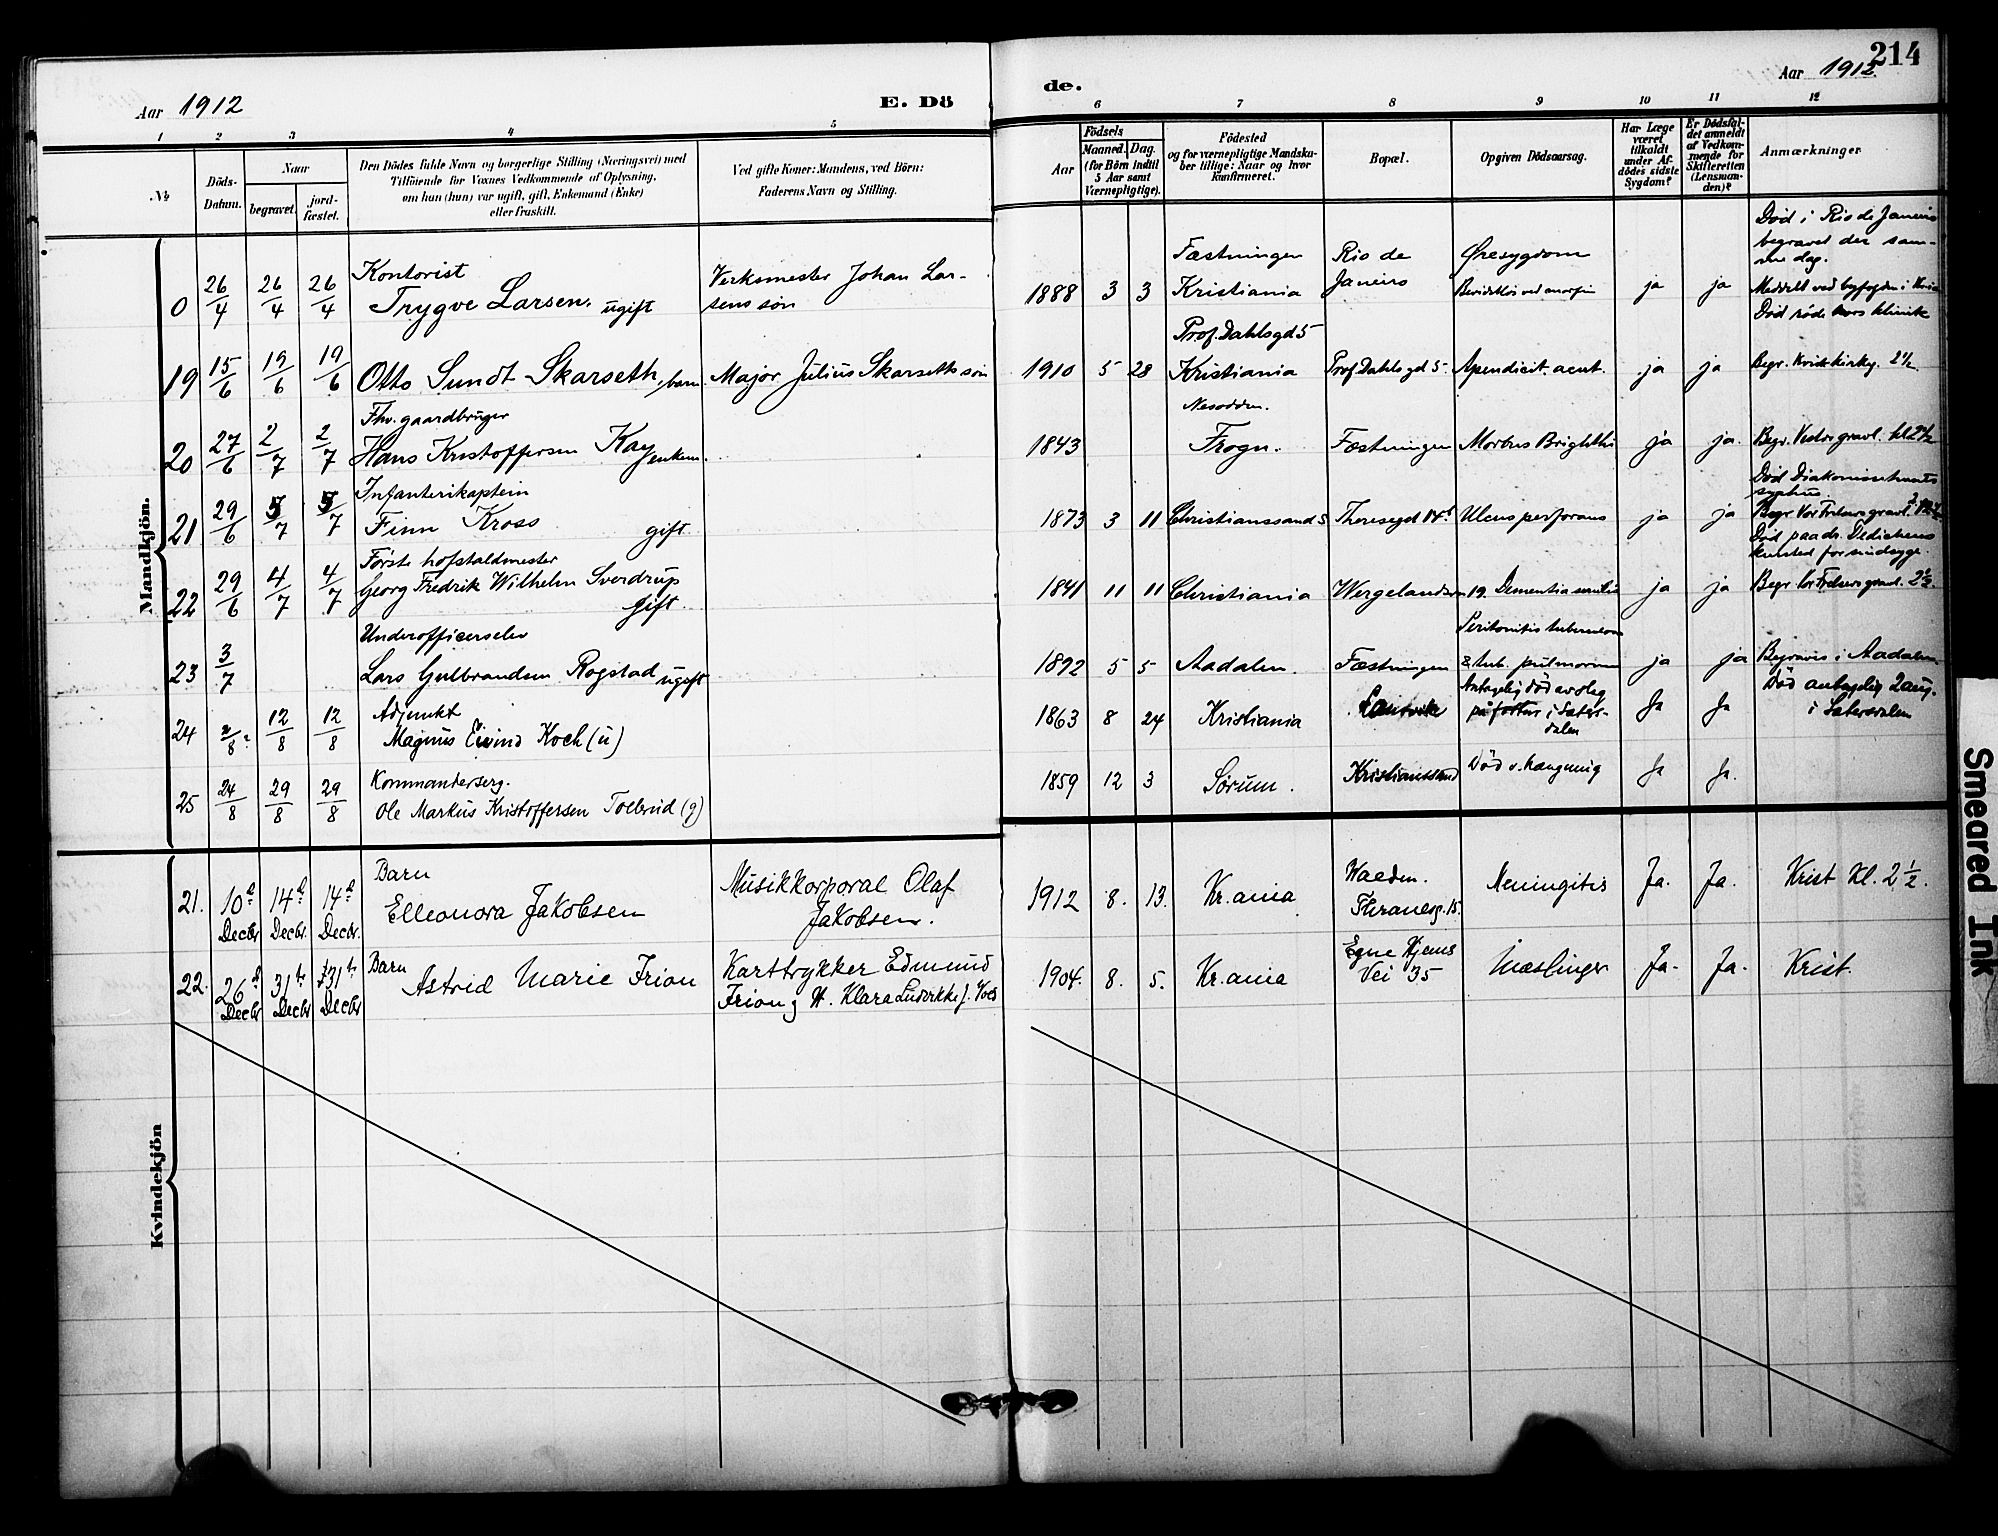 214
Aar 1912
E. Dö
de.
Aar 1912
1 2 3 4 5 6 7 8 9 10 11 12
№
Döds-
Datum.
Naar
begravet.
jord-
fæstet.
Den Dödes fulde Navn og borgerlige Stilling (Næringsvei) med
Tilföiende for Voxnes Vedkommende af Oplysning,
om han (hun) var ugift, gift, Enkemand (Enke)
eller fraskilt.
Ved gifte Koner: Mandens, ved Börn:
Faderens Navn og Stilling.
Födsels
Aar
Maaned. Dag.
(for Börn indtil
5 Aar samt
Værnepligtige).
Födested
og for værnepligtige Mandska-
ber tillige: Naar og hvor
konfirmeret.
Bopæl.
Opgiven Dödsaarsag.
Har Læge
været
tilkaldt
under Af-
dödes sidste
Sygdom?
Er Dödsfal-
det anmeldt
af Vedkom-
mende for
Skifteretten
(Lensman-
den)?
Anmærkninger
Mandkjön.
0 26/4 26/4 26/4
Kontorist
Trygve Larsen. ugift
Verksmester Johan Lar-
sens søn
1888 3 3
Fæstningen
Kristiania
Rio de
Janeiro
Øresygdom
ja ja
Død i Rio de Janeiro
begravet der sam-
me dag.
19 15/6 19/6 19/6
Otto Sundt Skarseth, barn
Major Julius Skarseths søn
1910 5 28
Prof. Dahlsgd 5
Kristiania
Prof. Dahlsgd 5
Apendicit. acut.
ja ja
Død røde kors klinik
Begr. 2½
20 27/6 2/7 2/7
Fhv. gaardbruger
Hans Kristoffersen Kay enkem.
1843
Nesodden.
Frogn.
Fæstningen
Morbus Brighthi
ja ja.
Begr. Vestre gravl. kl 2½
21 29/6 5/7 5/7
Infanterikaptein
Finn Kross gift
1873 3 11
Christianssand S
Theresegd 14
Ulcus perforans
ja ja
Død
Begr. Vor Frelsers gravl.
22 29/6 4/7 4/7
Første hofstaldmester
Georg Fredrik Wilhelm Sverdrup
gift.
1841 11 11
Christiania
Wergelandsvn 19.
Dementia senilis
ja ja
Død paa dr. Dedichens
kursted for sindsyge
Begr. Vor Frelsers gravl. 2½.
23 3/7
Underofficerselev
Lars Gulbrandsen Rogstad ugift
1892 5 5
Aadalen.
Fæstningen
Peritonitis tuberculosa
& tub. pulmonum
ja ja
Begraves i Aadalen
24 2/8? 12/8 12/8
Adjunkt
Magnus Eivind Koch (u)
1863 8 24
Kristiania
Antagelig død av slag
på fottur i Sæter-
dalen
Ja Ja
Død antagelig 2 aug.
i Sætersdalen
25 24/8 29/8 29/8
Kommanderserg.
Ole Markus Kristoffersen Tollerud (g)
1859 12 3
Sørum.
Kristianssand
Død v. hængning
Ja Ja.
Kvindekjön
21. 10d Decbr 14d Decbr. 14d Decbr.
Barn
Elleonora Jakobsen
Musikkorporal Olaf
Jakobsen.
1912 8. 13.
Kr.ania
Thranesg. 15.
Meningitis
Ja. Ja.
Krist Kl. 2½.
22. 26d Decbr 31te Decbr 31te Decbr
Barn
Astrid Marie Frion
Karttrykker Edmund
Frion og H. Klara
1904. 8. 5.
Kr.ania
Egne Hjems
Vei 35
Mæslinger
Ja. Ja.
Krist.
Smeared Ink